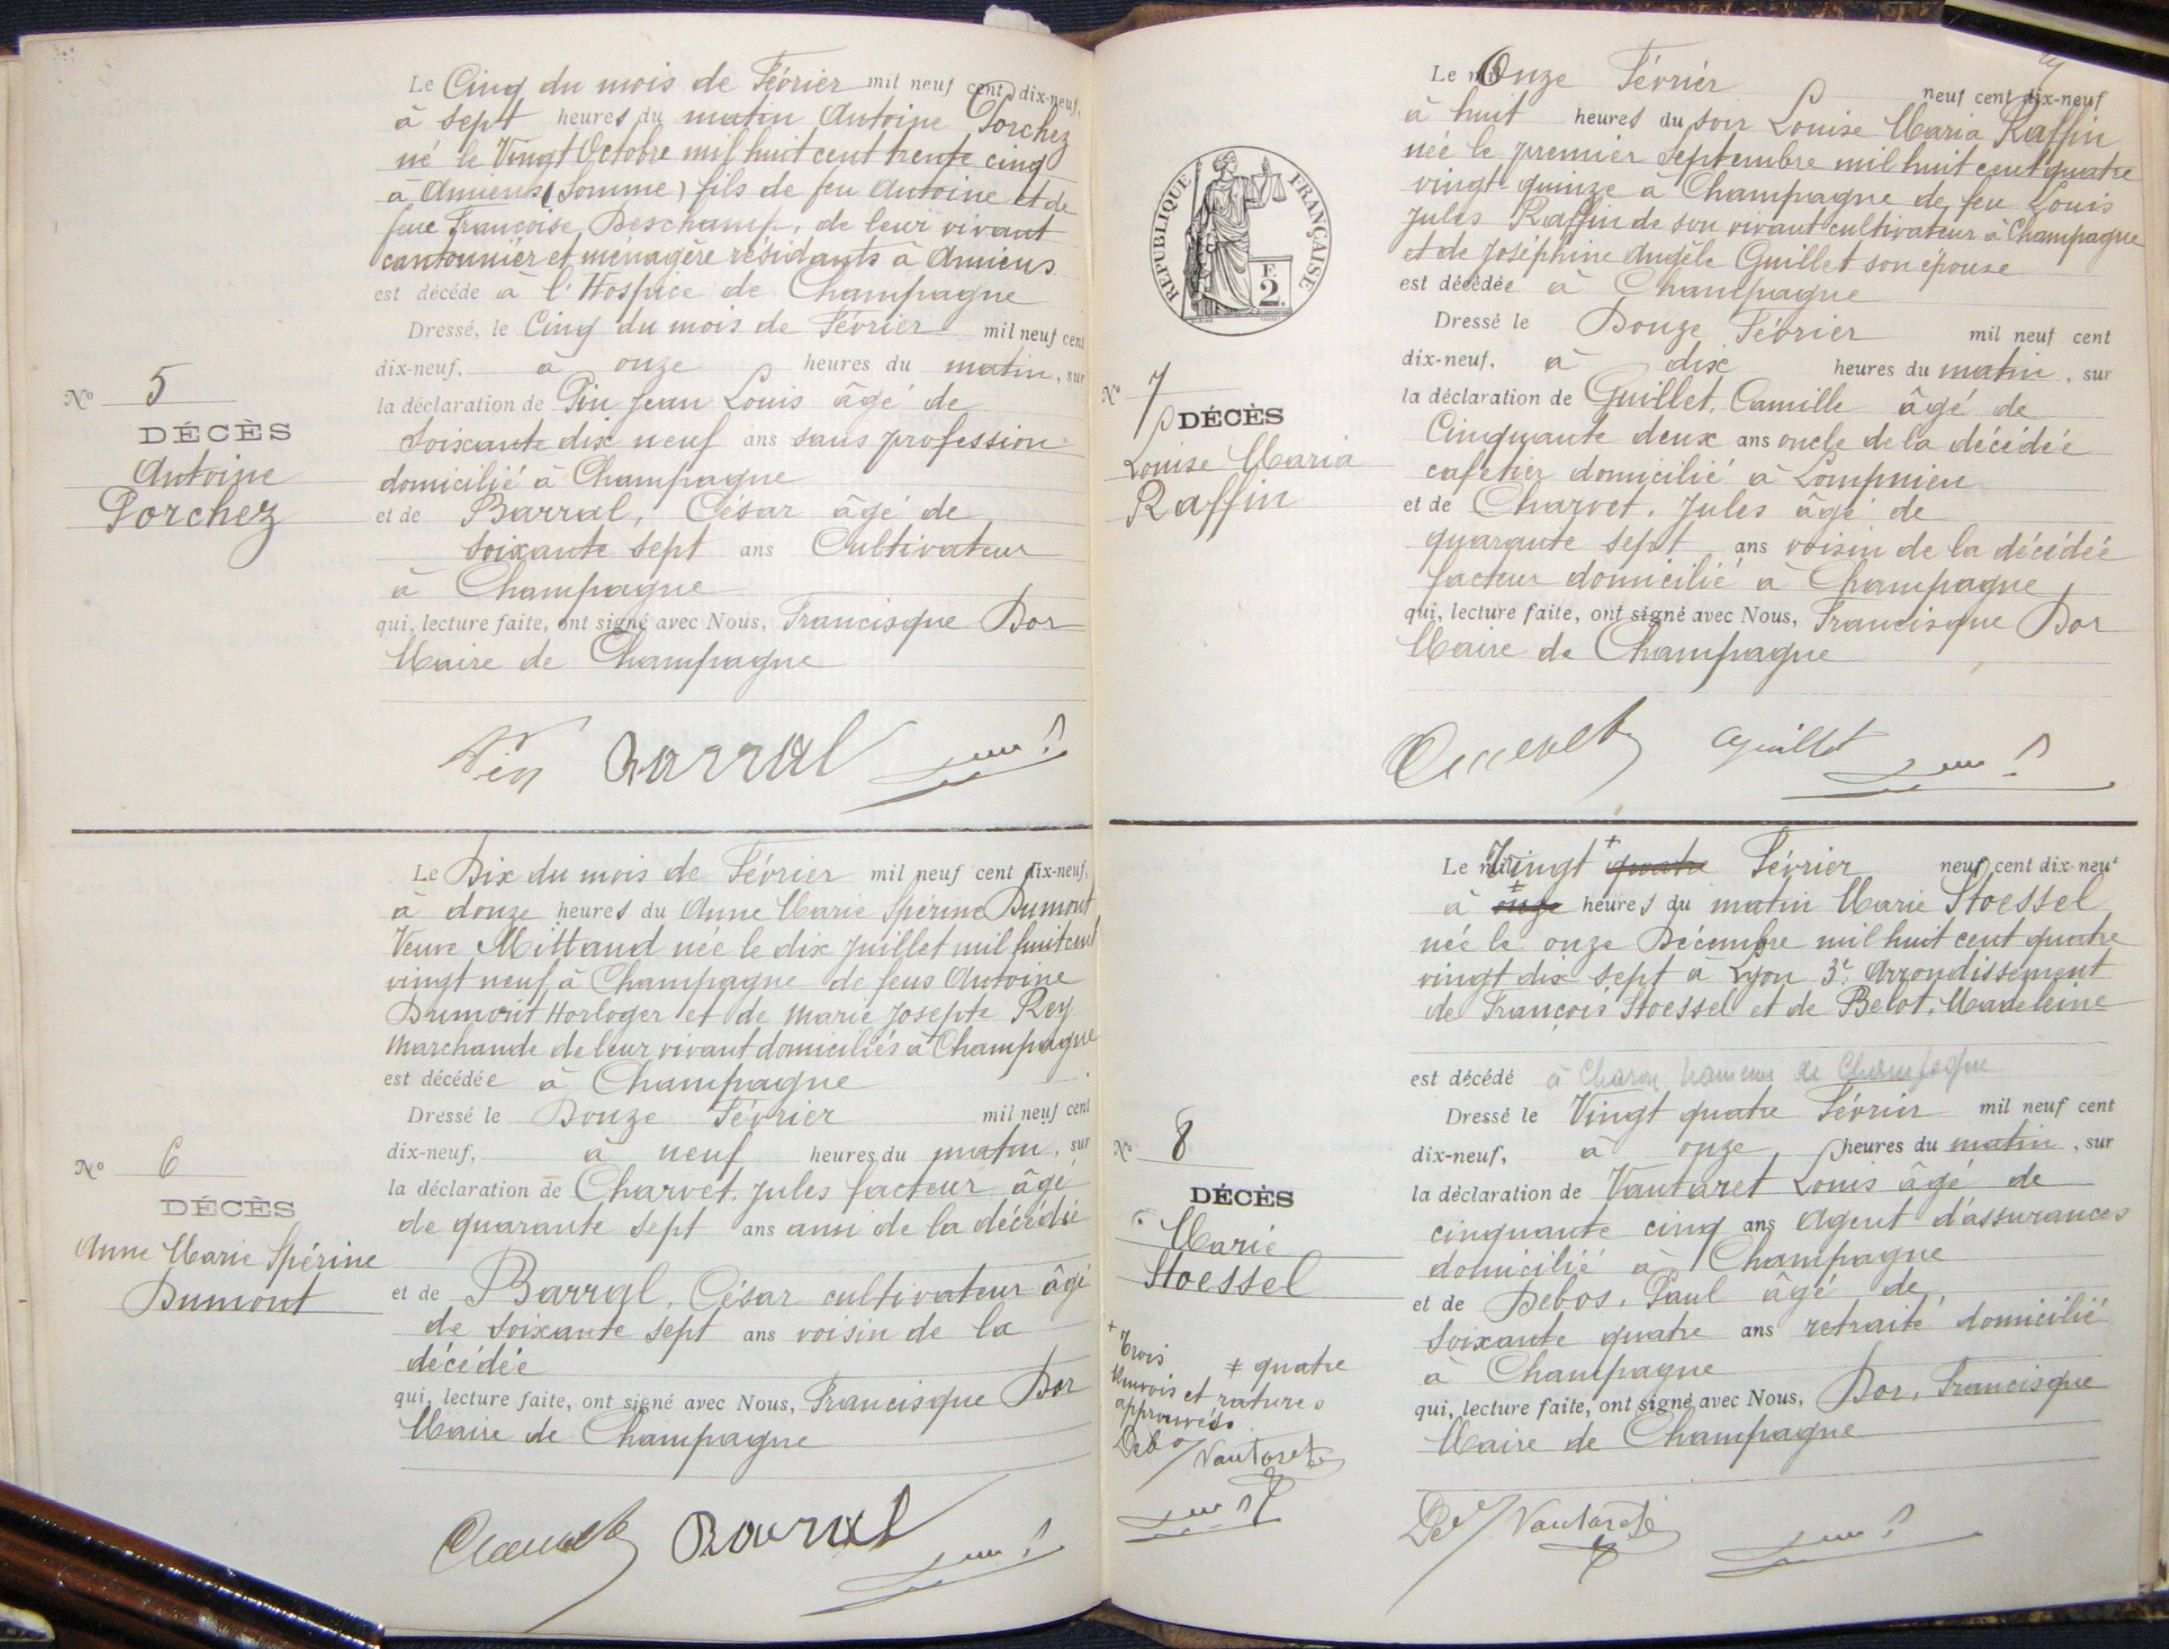 Le Cinq du mois de Février mil neuf cent dix-neuf,
à sept heures du matin Antoine Porchez
né le Vingt Octobre mil huit cent trente cinq
à Amiens (Somme) fils de feu Antoine et de
feue Françoise Deschamp, de leur vivant
cantonnier et ménagère résidants à Amiens
est décédé à l'Hospice de Champagne
Dressé, le Cinq du mois de Février mil neuf cent
dix-neuf, à onze heures du matin, sur
la déclaration de Pin Jean Louis âgé de
soixante dix neuf ans sans profession
domicilié à Champagne
et de Barral, César âgé de
soixante sept ans Cultivateur
à Champagne
qui, lecture faite, ont signé avec Nous, Francisque Dor
Maire de Champagne
Nº 5
DÉCÈS
Antoine
Porchez
Pin Barral
Le Dix du mois de Février mil neuf cent dix-neuf,
à douze heures du Anne Marie Spérine Dumont
Veuve Mittaud née le dix Juillet mil huit cent
vingt neuf à Champagne de feus Antoine
Dumont Horloger et de Marie Josepte Rey
Marchande de leur vivant domiciliés à Champagne
est décédée à Champagne
Dressé le Douze Février mil neuf cent
dix-neuf, à neuf heures du matin, sur
la déclaration de Charvet, Jules facteur âgé
de quarante sept ans ami de la décédée
et de Barral, César cultivateur âgé
de soixante sept ans voisin de la
décédée
qui, lecture faite, ont signé avec Nous, Francisque Dor
Maire de Champagne
Nº 6
DÉCÈS
Anne Marie Spérine
Dumont
Charvet Barral
Le Onze Février neuf cent dix-neuf
à huit heures du soir Louise Maria Raffin
née le premier Septembre mil huit cent quatre
vingt-quinze à Champagne de feu Louis
Jules Raffin de son vivant cultivateur à Champagne
et de Joséphine Angèle Guillet son épouse
est décédée à Champagne
Dressé le Douze Février mil neuf cent
dix-neuf, à dix heures du matin, sur
la déclaration de Guillet, Camille âgé de
Cinquante deux ans oncle de la décédée
cafetier domicilié à Lompnieu
et de Charvet, Jules âgé de
quarante sept ans voisin de la décédée
facteur domicilié à Champagne
qui, lecture faite, ont signé avec Nous, Francisque Dor
Maire de Champagne
RÉPUBLIQUE FRANÇAISE
F.
2.
Nº 7
DÉCÈS
Louise Maria
Raffin
Charvet Guillet
Le Vingt + quatre Février neuf cent dix-neuf
à onze heures du matin Marie Stoessel
née le onze Décembre mil huit cent quatre
vingt dix sept à Lyon 3e Arrondissement
de François Stoessel et de Belot, Madeleine
est décédé à hameau de Champagne
Dressé le Vingt quatre Février mil neuf cent
dix-neuf, à onze heures du matin, sur
la déclaration de Vautaret Louis âgé de
cinquante cinq ans Agent d'assurances
domicilié à Champagne
et de Debos, Paul âgé de
soixante quatre ans retraité domicilié
à Champagne
qui, lecture faite, ont signé avec Nous, Dor, Francisque
Maire de Champagne
Nº 8
DÉCÈS
Marie
Stoessel
+ trois
≠ quatre
Renvois et ratures
approuvés
Debos Vautaret
Debos Vautaret